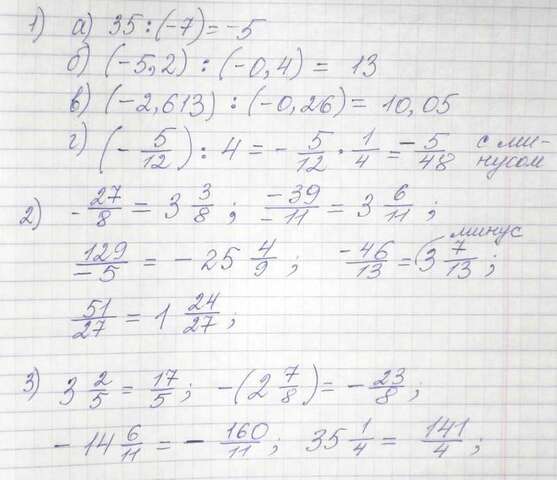 1) а) 35 : (-7) = -5
б) (-5,2) : (-0,4) = 13
в) (-2,613) : (-0,26) = 10,05
г) (-5/12) : 4 = -5/12 · 1/4 = -5/48 с ми-
нусом
2) -27/8 = 3 3/8 ; -39/-11 = 3 6/11 ;
минус
129/-5 = -25 4/9 ; -46/13 = (3 7/13 ;
51/27 = 1 24/27 ;
3) 3 2/5 = 17/5 ; -(2 7/8) = -23/8 ;
-14 6/11 = -160/11 ; 35 1/4 = 141/4 ;